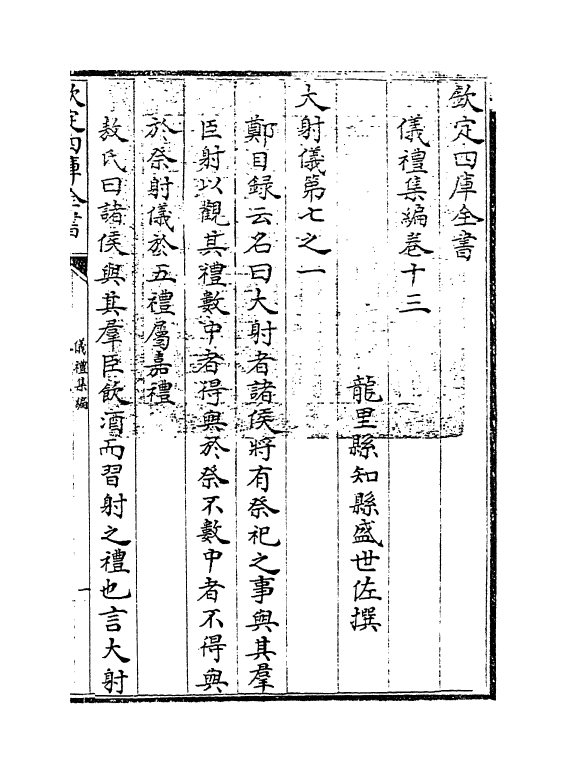 欽定四庫全書
儀禮集編卷十三
龍里縣知縣盛世佐撰
大射儀第七之一
鄭目録云名曰大射者諸侯將有祭祀之事與其羣
臣射以觀其禮數中者得與於祭不數中者不得與
於祭射儀於五禮屬嘉禮
敖氏曰諸侯與其羣臣飲酒而習射之禮也言大射
欽定四庫全書
儀禮集編
一